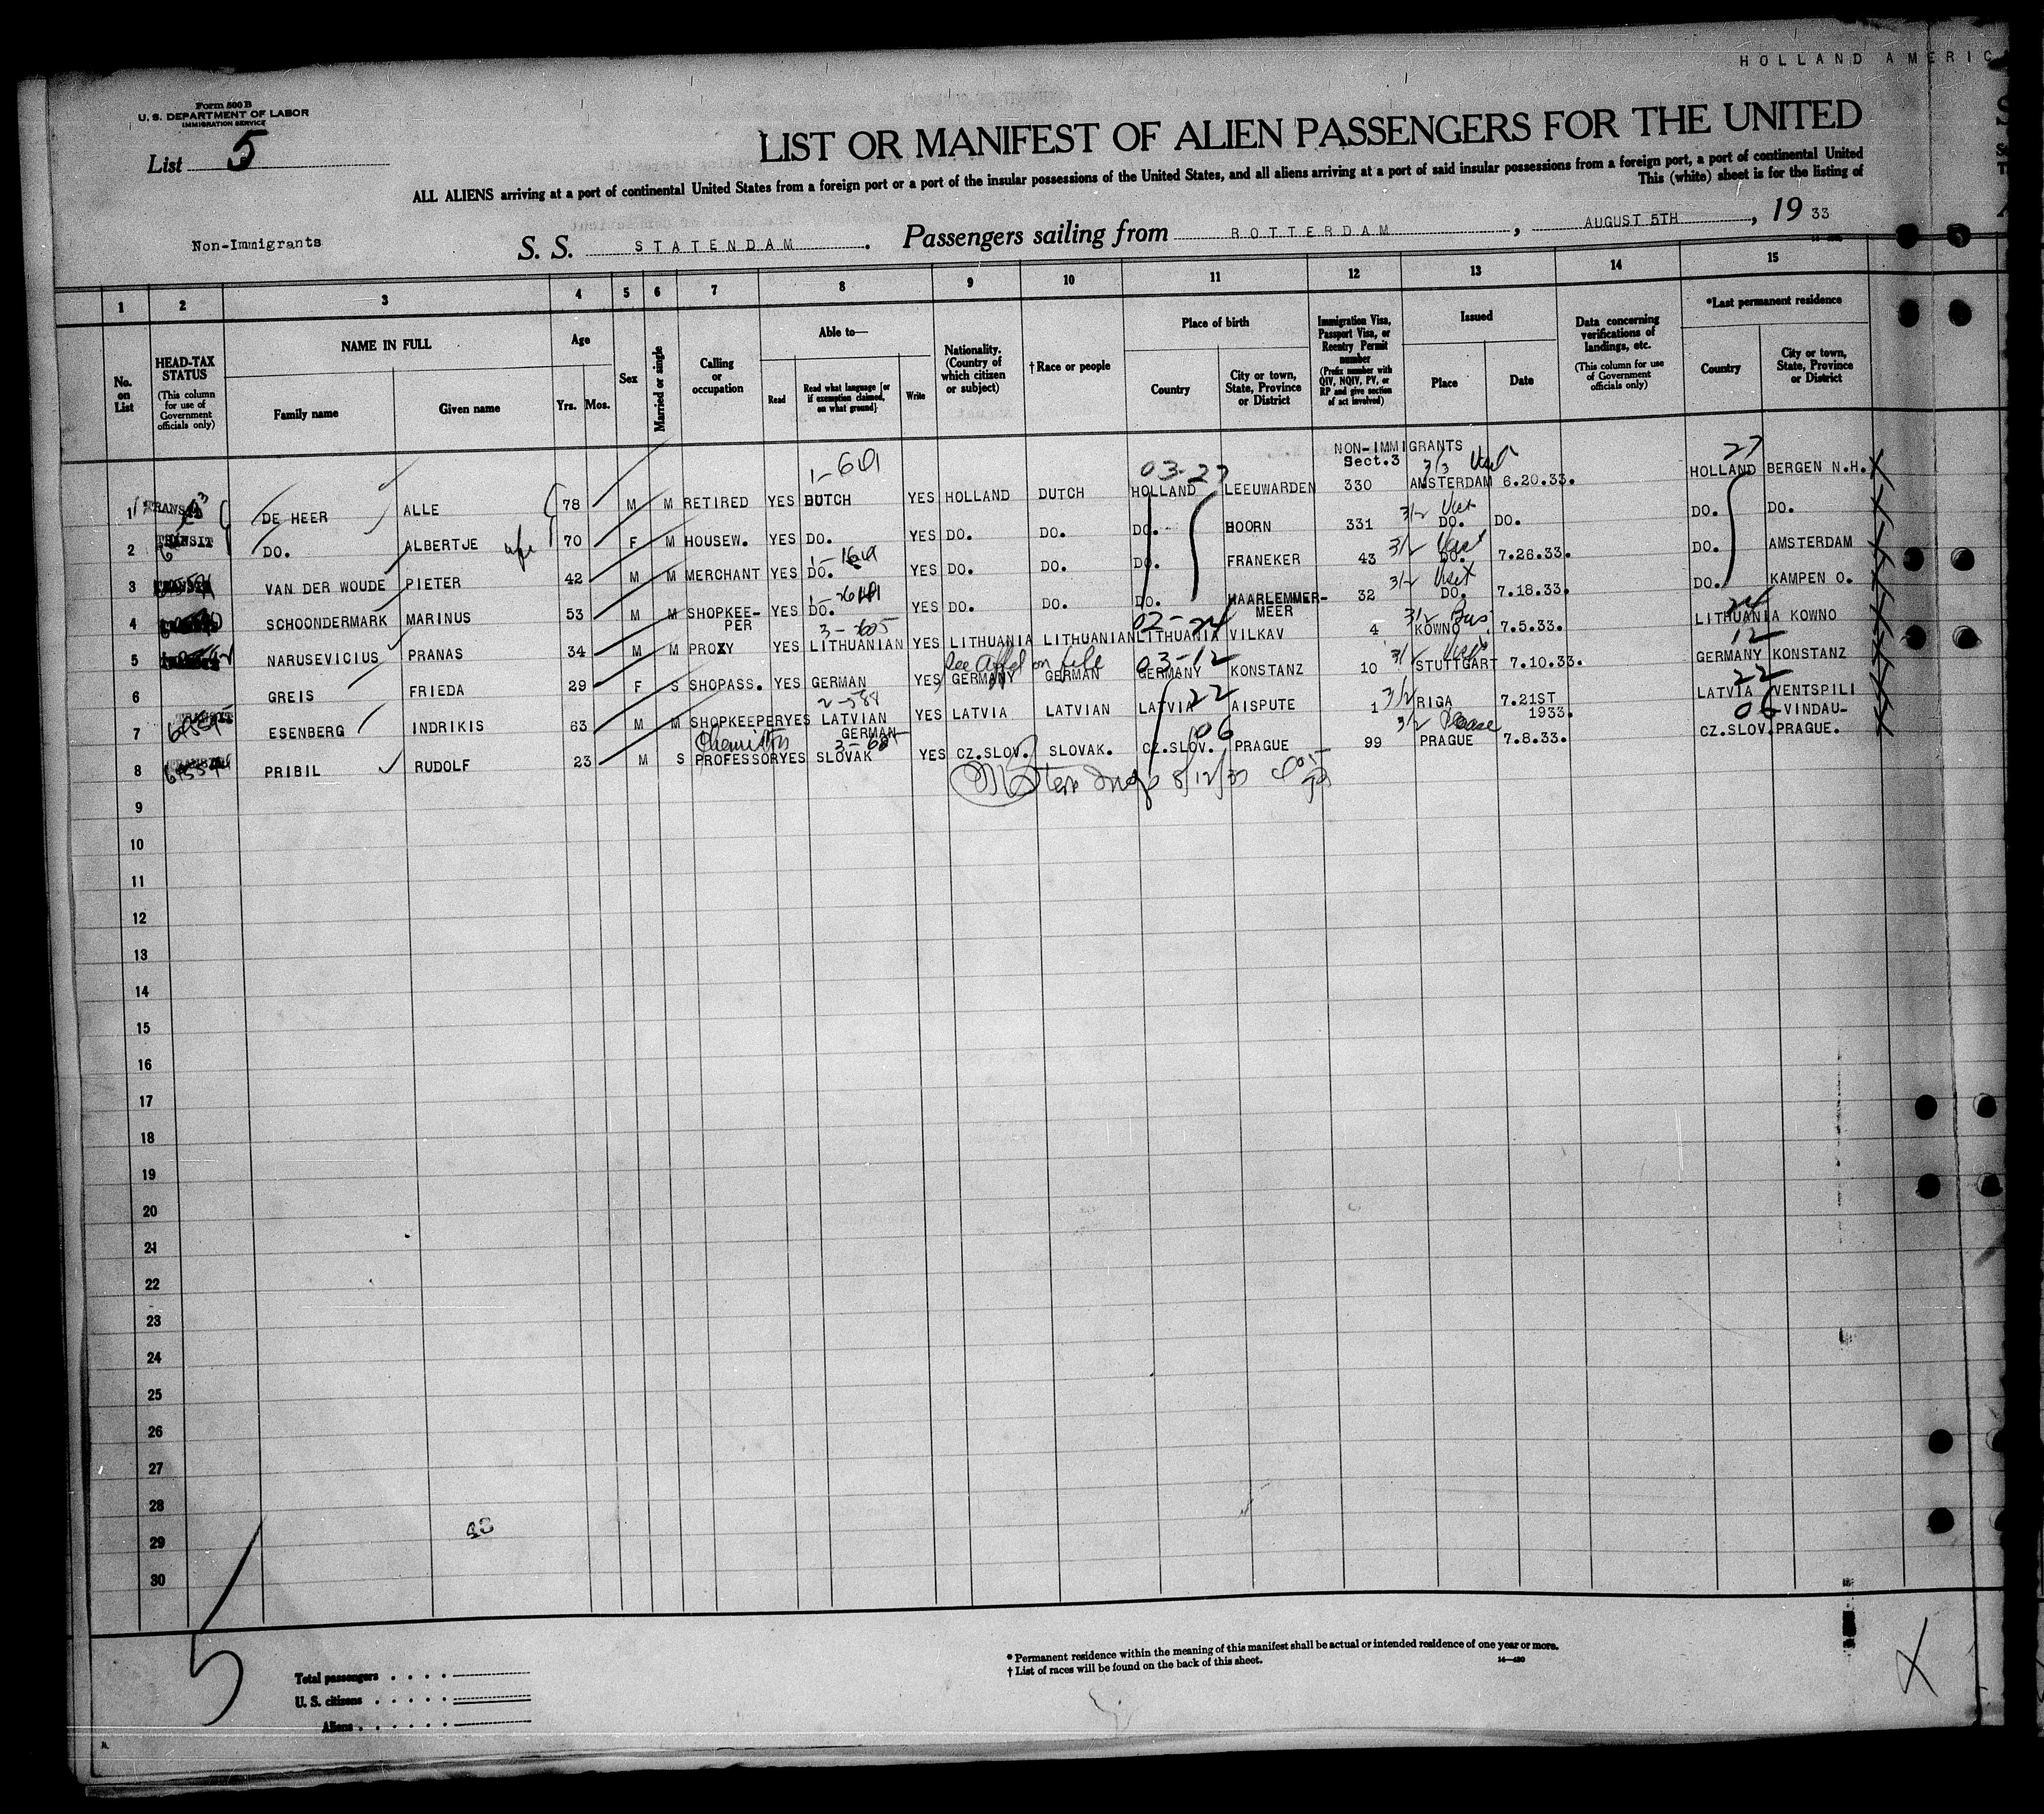 HOLLAND AMERIC
Form 500 B
U. S. DEPARTMENT OF LABOR
IMMIGRATION SERVICE
List 5
LIST OR MANIFEST OF ALIEN PASSENGERS FOR THE UNITED
ALL ALIENS arriving at a port of continental United States from a foreign port or a port of the insular possessions of the United States, and all aliens arriving at a port of said insular possessions from a foreign port, a port of continental United
This (white) sheet is for the listing of
Non-Immigrants
S. S. STATENDAM . Passengers sailing from ROTTERDAM , AUGUST 5TH , 19 33
1 2 3 4 5 6 7 8 9 10 11 12 13 14 15
No. on List
HEAD-TAX STATUS (This column for use of Government officials only)
NAME IN FULL
Family name Given name
Age
Yrs. Mos.
Sex
Married or single
Calling or occupation
Able to—
Read Read what language [or if exemption claimed, on what ground] Write
Nationality. (Country of which citizen or subject)
†Race or people
Place of birth
Country City or town, State, Province or District
Immigration Visa, Passport Visa, or Reentry Permit number (Prefix number with QIV, NQIV, PV, or RP and give section of act involved)
Issued
Place Date
Data concerning verifications of landings, etc. (This column for use of Government officials only)
*Last permanent residence
Country City or town, State, Province or District
NON-IMMIGRANTS
Sect.3
03-27 3/3 Visit 27
1 TRANSIT DE HEER ALLE 78 M M RETIRED YES DUTCH YES HOLLAND DUTCH HOLLAND LEEUWARDEN 330 AMSTERDAM 6.20.33. HOLLAND BERGEN N.H.
3/2 Visit
2 TRANSIT DO. ALBERTJE wife 70 F M HOUSEW. YES DO. YES DO. DO. DO. HOORN 331 DO. DO. DO. DO.
3/2 Visit
3 VAN DER WOUDE PIETER 42 M M MERCHANT YES DO. YES DO. DO. DO. FRANEKER 43 DO. 7.26.33. DO. AMSTERDAM
3/2 Visit
4 SCHOONDERMARK MARINUS 53 M M SHOPKEE-PER YES DO. YES DO. DO. DO. HAARLEMMER-MEER 32 DO. 7.18.33. DO. KAMPEN O.
3-605 02-24 3/2 Bus 24
5 NARUSEVICIUS PRANAS 34 M M PROXY YES LITHUANIAN YES LITHUANIA LITHUANIAN LITHUANIA VILKAV 4 KOWNO 7.5.33. LITHUANIA KOWNO
See Affid on file 03-12 3/2 Visit 12
6 GREIS FRIEDA 29 F S SHOPASS. YES GERMAN YES GERMANY GERMAN GERMANY KONSTANZ 10 STUTTGART 7.10.33. GERMANY KONSTANZ
2-588 22 3/2 22
7 TRANSIT ESENBERG INDRIKIS 63 M M SHOPKEEPER YES LATVIAN GERMAN YES LATVIA LATVIAN LATVIA AISPUTE 1 RIGA 7.21ST 1933. LATVIA VENTSPILI -VINDAU-
06 3/2 06
8 PRIBIL RUDOLF 23 M S PROFESSOR YES SLOVAK YES CZ.SLOV. SLOVAK. CZ.SLOV. PRAGUE 99 PRAGUE 7.8.33. CZ.SLOV. PRAGUE.
9
10
11
12
13
14
15
16
17
18
19
20
21
22
23
24
25
26
27
28
29
30
5
Total passengers
U. S. citizens
Aliens
* Permanent residence within the meaning of this manifest shall be actual or intended residence of one year or more.
† List of races will be found on the back of this sheet.
14—430